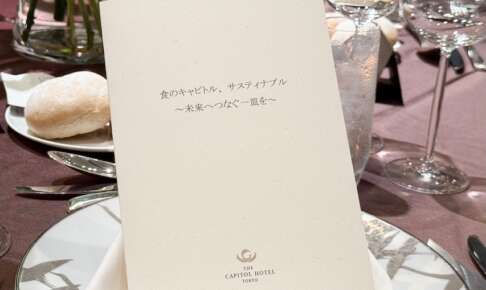 食のキャピトル、サスティナブル
〜未来へつなぐ一皿を〜
THE
CAPITOL HOTEL
TOKYO